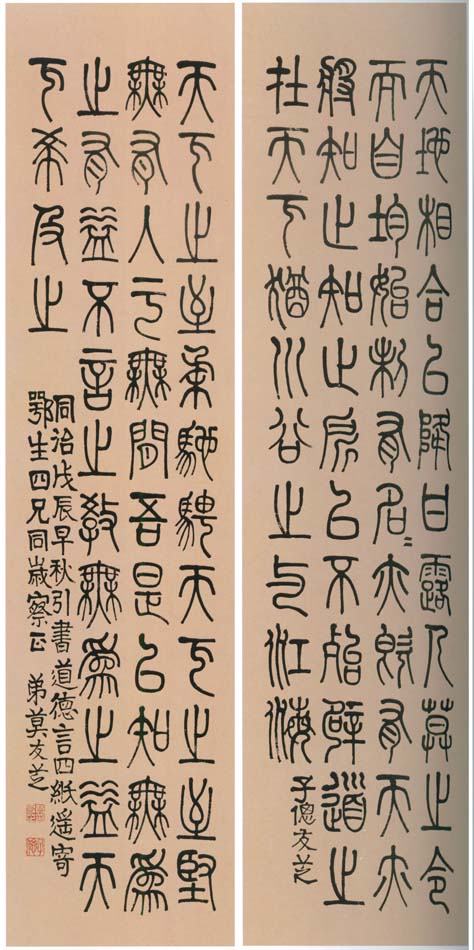 天地相合以降甘露人莫之令
而自均始制有名〻亦既有天亦
將知之知之所以不殆譬道之
在天下猶川谷之与江海
子偲友芝
天下之至柔馳騁天下之至堅
無有入于無間吾是以知無為
之有益不言之教無為之益天
下希及之
同治戊辰早秋引書道德言四紙遙寄
鄂生四兄同歲察正 弟莫友芝